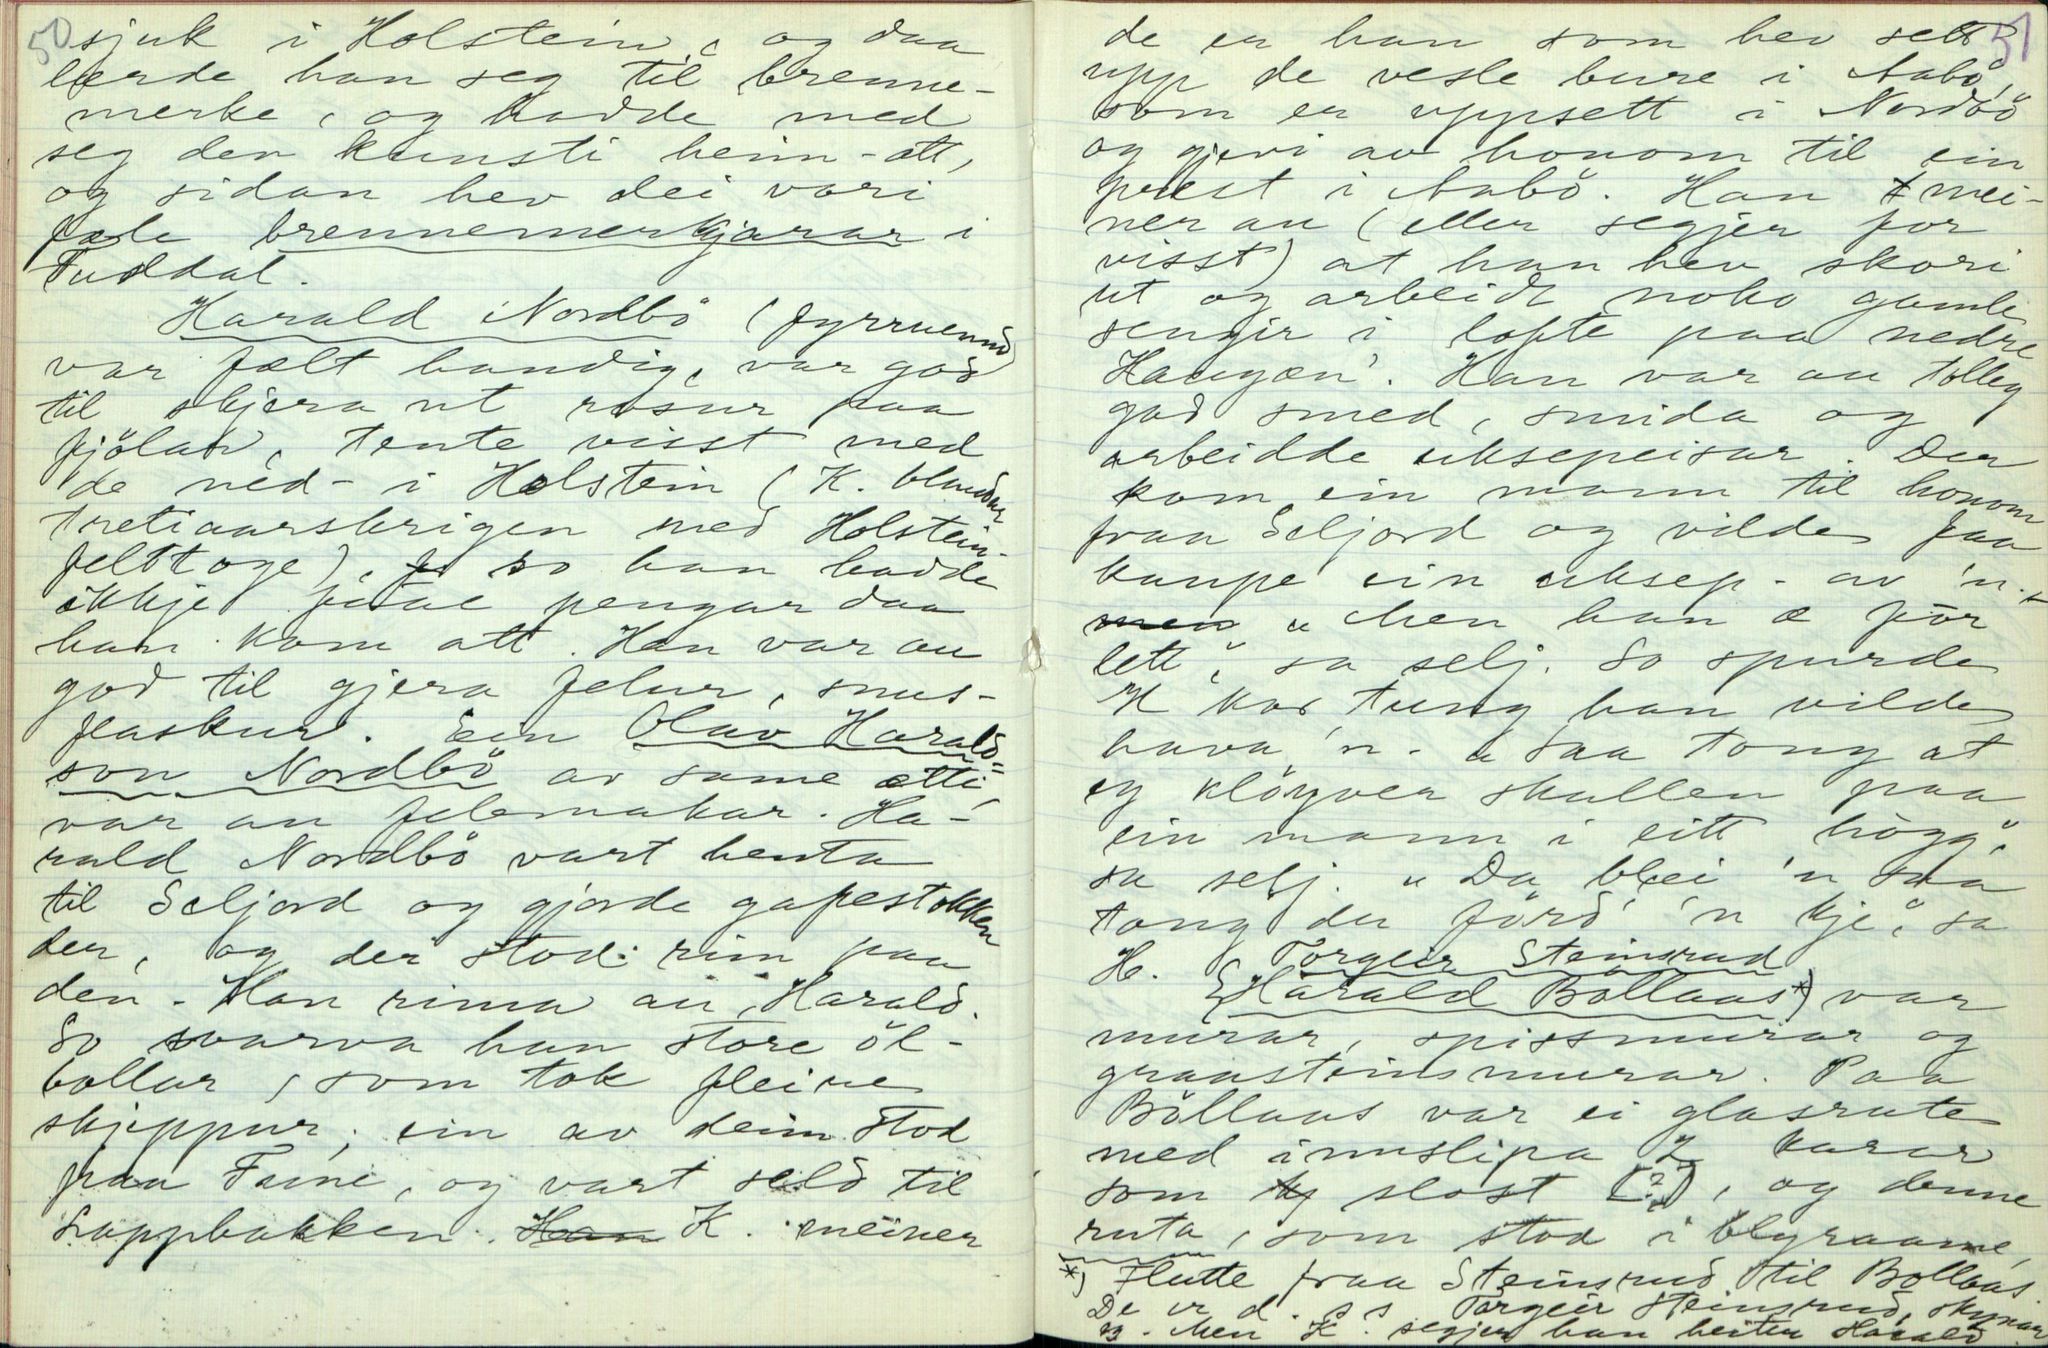 50
sjuk i Holstein, og daa
lærde han seg til brenne-
merke, og hadde med
seg den kunsti heim-att,
og sidan hev dei vori
fæle brennemerkjarar i
Tuddal.
Harald Nordbö (fyrrnemnd)
var fælt handig, var god
til skjera ut rosur paa
fjölar, tente visst med
de ned- i Holstein (K. blandar
tretiaarskrigen med Holstein-
felttoge), so han hadde
ikkje faae pengar daa
han kom att. Han var au
god til gjera felur, snus-
flaskur. Ein Olav Harald-
son Nordbö av same ætti,
var au felemakar. Ha-
rald Nordbö vart henta
til Seljord og gjorde gapestokken
der, og der stod rim paa
den. Han rima au, Harald.
So svarva han store öl-
bollar, som tok fleire
skjeppur; ein av deim stod
paa Tune, og vart seld til
Lappbakken. Han K. meiner
51
de er han som hev sett
upp de vesle bure i Aabö,
som er uppsett i Nordbö
og gjevi av honom til ein
prest i Aabö. Han mei-
ner au (eller segjer for
visst) at han hev skori
ut og arbeidt noko gamle
sengir i lofte paa nedre
Haugan'. Han var au tolleg
god smed, smida og
arbeidde uksepeisar. Der
kom ein mann til honom
fraa Seljord og vilde faa
kaupe ein uksep. av 'n.
men „Men han æ før
lett", sa selj. So spurde
H kor tung han vilde
hava 'n. „Saa tong at
eg klöyver skallen paa
ein mann i eitt högg",
sa selj. „Da blei 'n saa
tong du förd' 'n kje", sa
H.
Torgeir Steinsrud
{Harald Böllaas*) var
murar, spissmurar og
graasteinsmurar. Paa
Böllaas var ei glasrute
med innslipa 2 karar
som slost (?), og denne
ruta, som stod i blyraame,
*) Flutte fraa Steinsrud til Bollaas.
De er d. s s Torgeir Steinsrud, skynar
eg. Men K. segjer han heiter Harald.